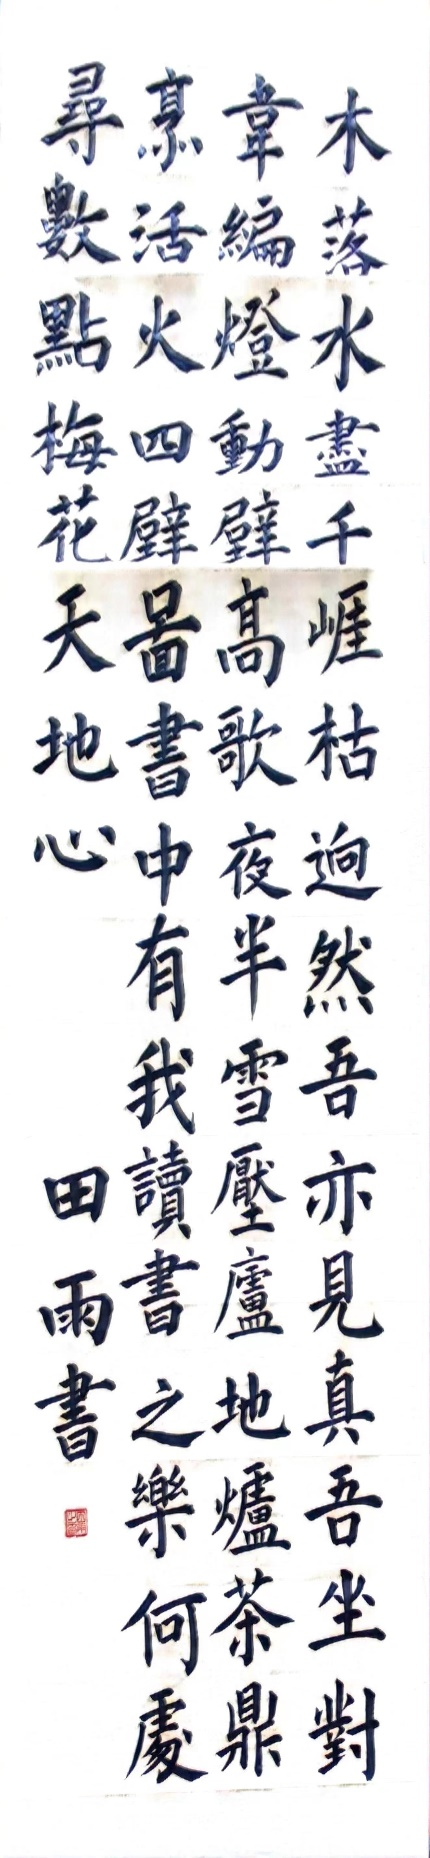 木落水盡千崕枯迥然吾亦見真吾坐對
韋編燈動壁高歌夜半雪壓廬地爐茶鼎
烹活火四壁啚書中有我讀書之樂何處
尋數點梅花天地心
田雨書